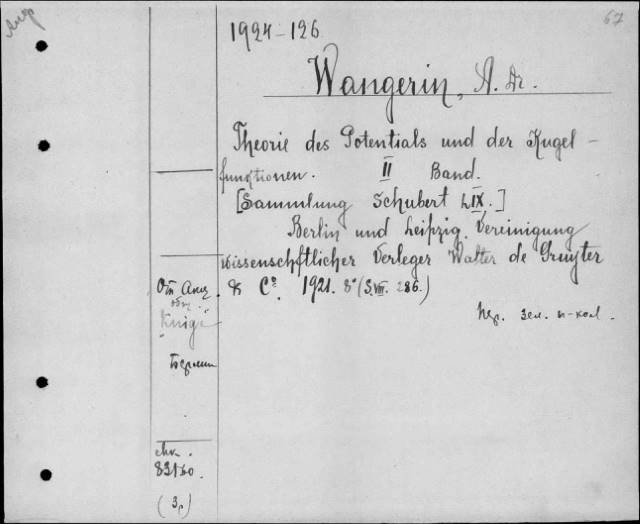 67
1924-126
Wangerin, A. Dr.
Theorie des Potentials und der Kugel-
funktionen. II Band.
[Sammlung Schubert LIX.]
Berlin und Leipzig. Vereinigung
wissenschftlicher Verleger Walter de Gruyter
& Cº. 1921. 8° (S. VIII. 286.)
От Акц.
общ.
"Kniga"
Берлин
Пер. зел. п-кол.
инв.
83160.
(3р)